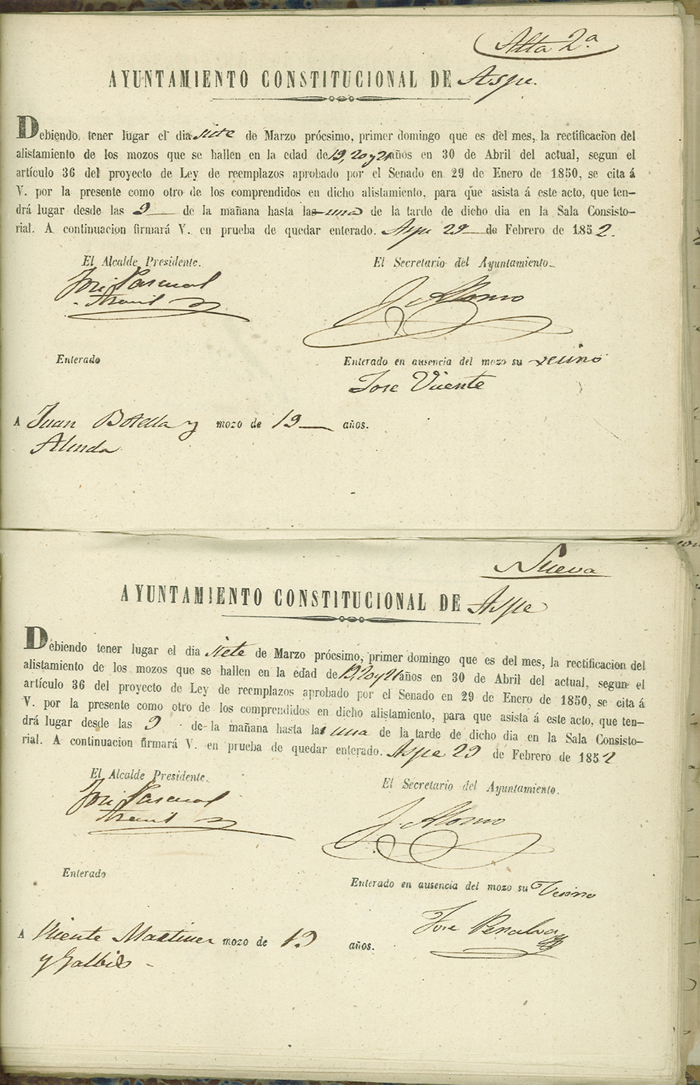 Alta 2ª
AYUNTAMIENTO CONSTITUCIONAL DE Aspe.
Debiendo tener lugar el dia siete de Marzo prócsimo, primer domingo que es del mes, la rectificacion del
alistamiento de los mozos que se hallen en la edad de 19, 20 y 21 años en 30 de Abril del actual, segun el
artículo 36 del proyecto de Ley de reemplazos aprobado por el Senado en 29 de Enero de 1850, se cita á
V. por la presente como otro de los comprendidos en dicho alistamiento, para que asista á este acto, que ten-
drá lugar desde las 9 de la mañana hasta las una de la tarde de dicho dia en la Sala Consisto-
rial. A continuacion firmará V. en prueba de quedar enterado. Aspe 29 de Febrero de 1852.
El Alcalde Presidente. El Secretario del Ayuntamiento.
José Pascual J. Alonso
Enterado Enterado en ausencia del mozo su vecino
Jose Vicente
A Juan Botella y mozo de 19 años.
Nueva
AYUNTAMIENTO CONSTITUCIONAL DE Aspe
Debiendo tener lugar el dia siete de Marzo prócsimo, primer domingo que es del mes, la rectificacion del
alistamiento de los mozos que se hallen en la edad de 19, 20 y 21 años en 30 de Abril del actual, segun el
artículo 36 del proyecto de Ley de reemplazos aprobado por el Senado en 29 de Enero de 1850, se cita á
V. por la presente como otro de los comprendidos en dicho alistamiento, para que asista á este acto, que ten-
drá lugar desde las 9 de la mañana hasta las una de la tarde de dicho dia en la Sala Consisto-
rial. A continuacion firmará V. en prueba de quedar enterado. Aspe 29 de Febrero de 1852
El Alcalde Presidente. El Secretario del Ayuntamiento.
José Pascual J. Alonso
Enterado Enterado en ausencia del mozo su Vecino
Jose Penalva
A Vicente Martinez mozo de 19 años.